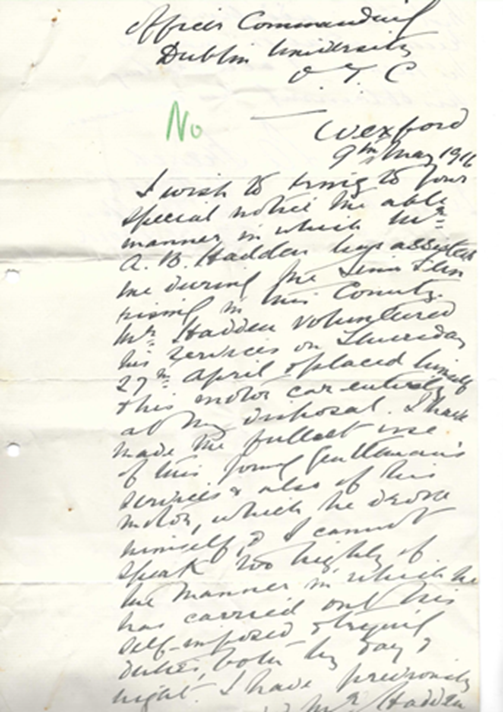 Officer Commanding
Dublin University
O. T. C
No
Wexford
9th May 1916
I wish to bring to your
special notice the able
manner in which Mr
A. B. Hadden has assisted
me during the Sinn Fein
rising in this County.
Mr Hadden volunteered
his services on Thursday
27th April & placed himself
& his motor car entirely
at my disposal. I have
made the fullest use
of this young gentleman's
services & also of his
motor, which he drove
himself, & I cannot
speak too highly of
the manner in which he
has carried out his
self-imposed & trying
duties, both by day &
night. I have previously
Mr Hadden